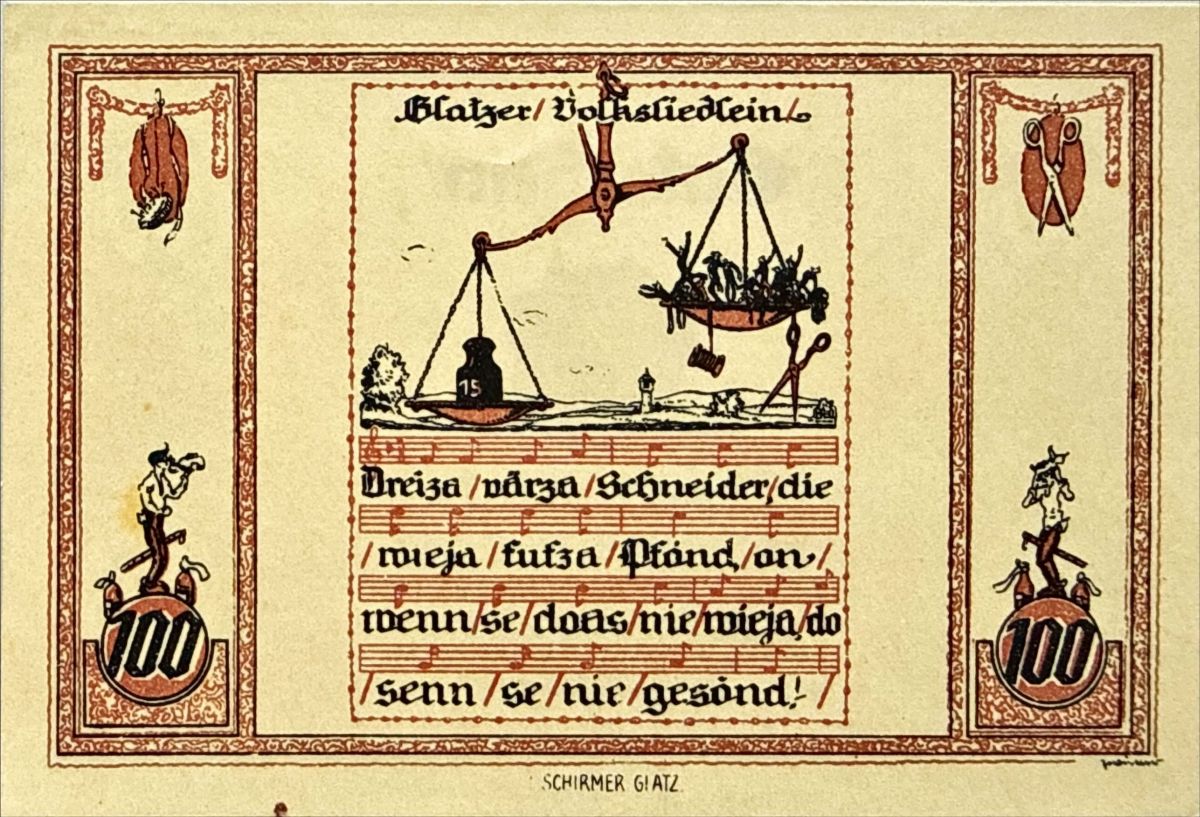 Glatzer / Volksliedlein /
15
Dreiza / värza / Schneider, / die
/ wieja / fufza / Pfónd, / on /
wenn / se / doas / nie / wieja, / do
/ senn / se / nie / gesònd! /
100
100
SCHIRMER GLATZ